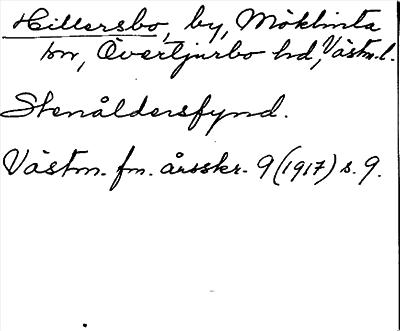 Hillersbo, by, Möklinta
sn, Övertjurbo hd, Västm. l.
Stenåldersfynd.
Västm. fm. årsskr. 9 (1917) s. 9.